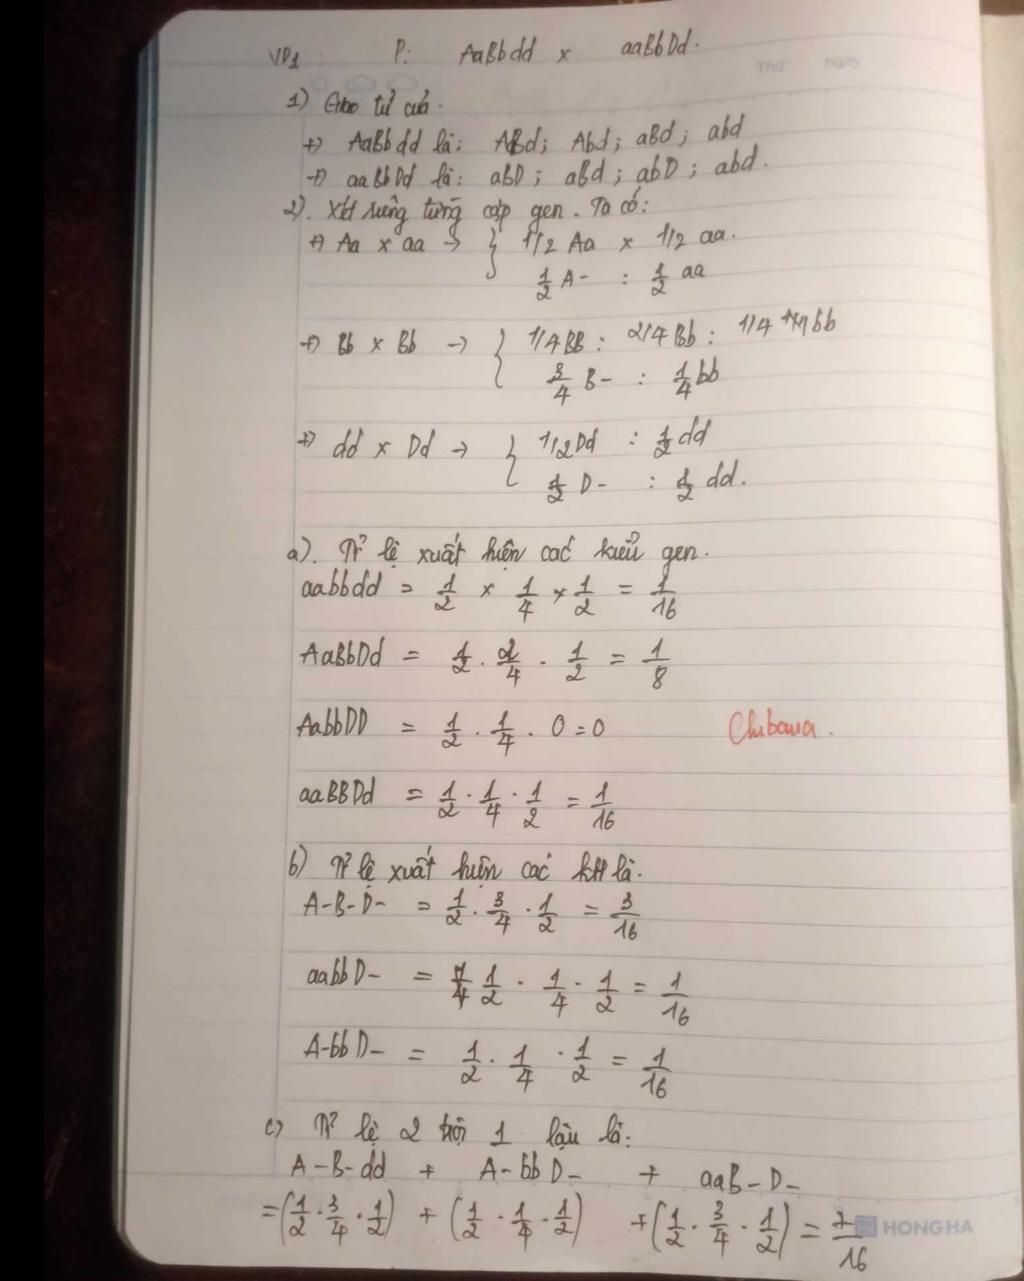 VD1 : P: AaBbdd x aaBbDd.
Thứ ngày
1) Giao tử của.
+) AaBbdd là: ABd; Abd; aBd; abd
+) aaBbDd là: aBD; aBd; abD; abd.
2). Xét riêng từng cặp gen. Ta có:
+) Aa x aa → { 1/2 Aa x 1/2 aa.
1/2 A- : 1/2 aa
+) Bb x Bb → { 1/4BB : 2/4Bb : 1/4 bb
3/4 B- : 1/4 bb
+) dd x Dd → { 1/2Dd : 1/2 dd
1/2 D- : 1/2 dd.
a). Tỉ lệ xuất hiện các kiểu gen.
aabbdd = 1/2 x 1/4 x 1/2 = 1/16
AaBbDd = 1/2 . 2/4 . 1/2 = 1/8
AabbDD = 1/2 . 1/4 . 0 = 0
aaBBDd = 1/2 . 1/4 . 1/2 = 1/16
b) Tỉ lệ xuất hiện các KH là.
A-B-D- = 1/2 . 3/4 . 1/2 = 3/16
aabbD- = 1/2 . 1/4 . 1/2 = 1/16
A-bbD- = 1/2 . 1/4 . 1/2 = 1/16
c) Tỉ lệ 2 trội 1 lặn là:
A-B-dd + A-bbD- + aaB-D-
= (1/2 . 3/4 . 1/2) + (1/2 . 1/4 . 1/2) + (1/2 . 3/4 . 1/2) = 7/16
HONG HA